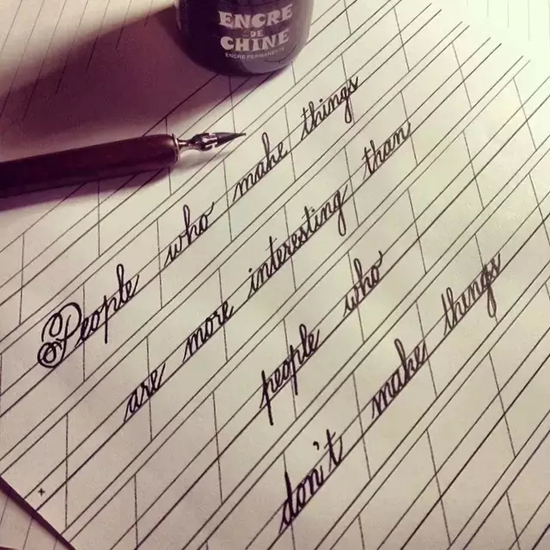 ENCRE
DE
CHINE
ENCRE PERMANENTE
People who make things
are more interesting than
people who
don't make things